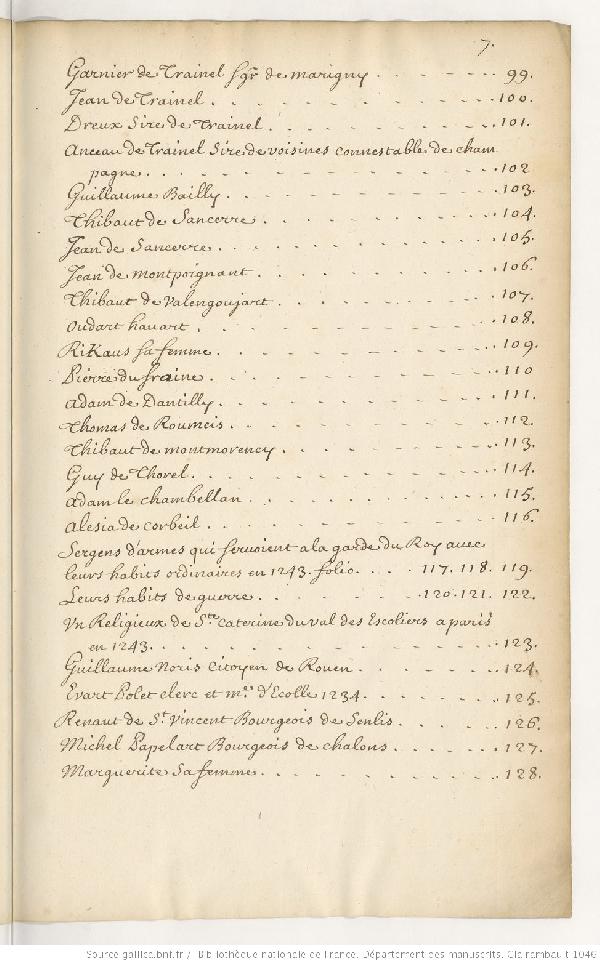 7.
Garnier de Trainel sgr de marigny . . . . . . 99.
Jean de Trainel . . . . . . . . . . . 100.
Dreux Sire de Trainel . . . . . . . . . 101.
Anceau de Trainel Sire de voisines connestable de cham
pagne . . . . . . . . . . . . . . 102
Guillaume Bailly . . . . . . . . . . . 103.
Thibaut de Sancerre . . . . . . . . . . 104.
Jean de Sancerre . . . . . . . . . . . 105.
Jean de montpoignant . . . . . . . . . . 106.
Thibaut de Valengoujart . . . . . . . . . 107.
Oudart havart . . . . . . . . . . . . 108.
RiKaus sa femme . . . . . . . . . . . 109.
Pierre du fraine . . . . . . . . . . . 110
Adam de Dantilly . . . . . . . . . . . 111.
Thomas de Roumcis . . . . . . . . . . 112.
Thibaut de montmorency . . . . . . . . . 113.
Guy de Thorel . . . . . . . . . . . . 114.
Adam le chambellan . . . . . . . . . . 115.
Alesia de corbeil . . . . . . . . . . . 116.
Sergens d'armes qui servoient a la garde du Roy avec
leurs habits ordinaires en 1243. folio . . . . 117. 118. 119.
Leurs habits de guerre . . . . . . . 120. 121. 122.
Un Religieux de Ste Caterine du val des Escoliers a paris
en 1243 . . . . . . . . . . . . . . 123.
Guillaume Noris Citoyen de Rouen . . . . . . 124.
Evart Polet clerc et mre d'Ecolle 1234 . . . . . . 125.
Renaut de St Vincent Bourgeois de Senlis . . . . . 126.
Michel Papelart Bourgeois de chalons . . . . . . 127.
Marguerite Sa femme . . . . . . . . . . 128.
Source gallica.bnf.fr / Bibliothèque nationale de France. Département des manuscrits. Clairambault 1046